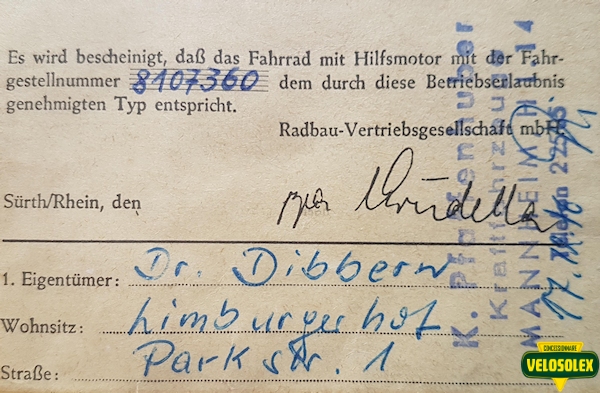 Es wird bescheinigt, daß das Fahrrad mit Hilfsmotor mit der Fahr-
gestellnummer 8107360 dem durch diese Betriebserlaubnis
genehmigten Typ entspricht.
Radbau-Vertriebsgesellschaft mbH.
Sürth/Rhein, den
1. Eigentümer: Dr. Dibbern
Wohnsitz: Limburgerhof
Straße: Parkstr. 1
Kraftfahrzeuge
MANNHEIM
Telefon
CONCESSIONNAIRE
VELOSOLEX